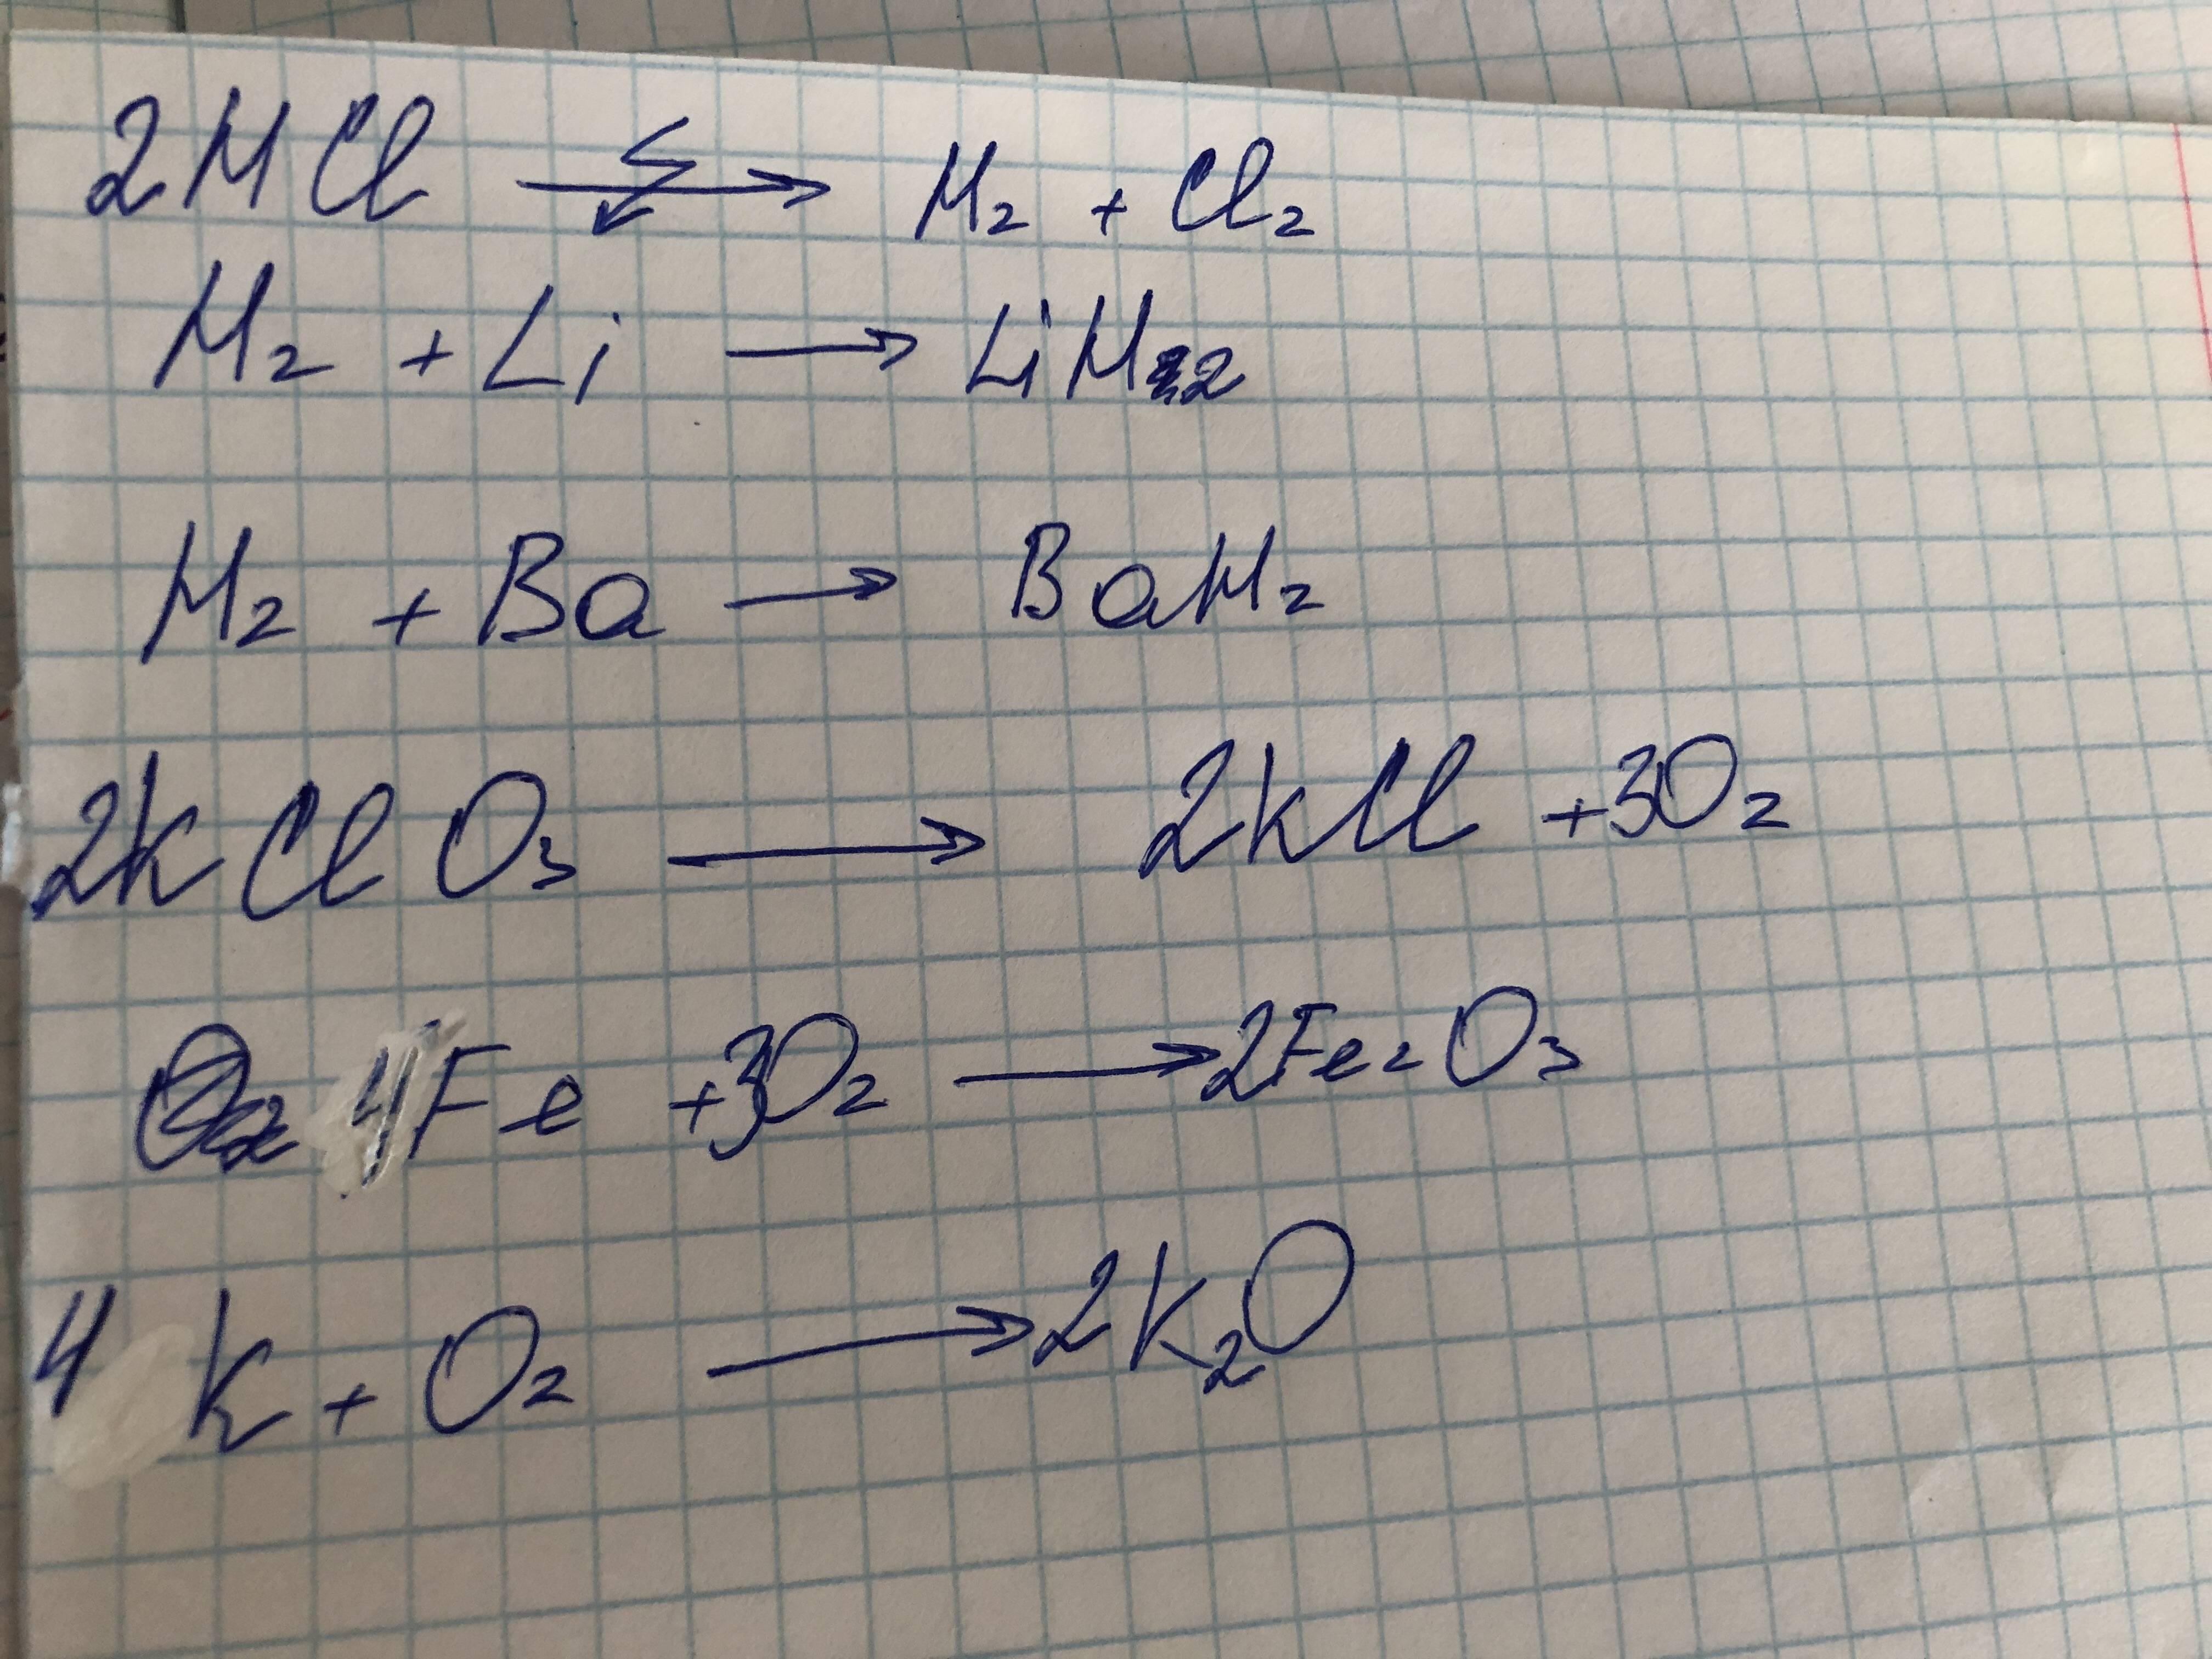 2HCl → H₂ + Cl₂
H₂ + Li → LiH₂
H₂ + Ba → BaH₂
2KClO₃ → 2KCl + 3O₂
4Fe + 3O₂ → 2Fe₂O₃
4K + O₂ → 2K₂O